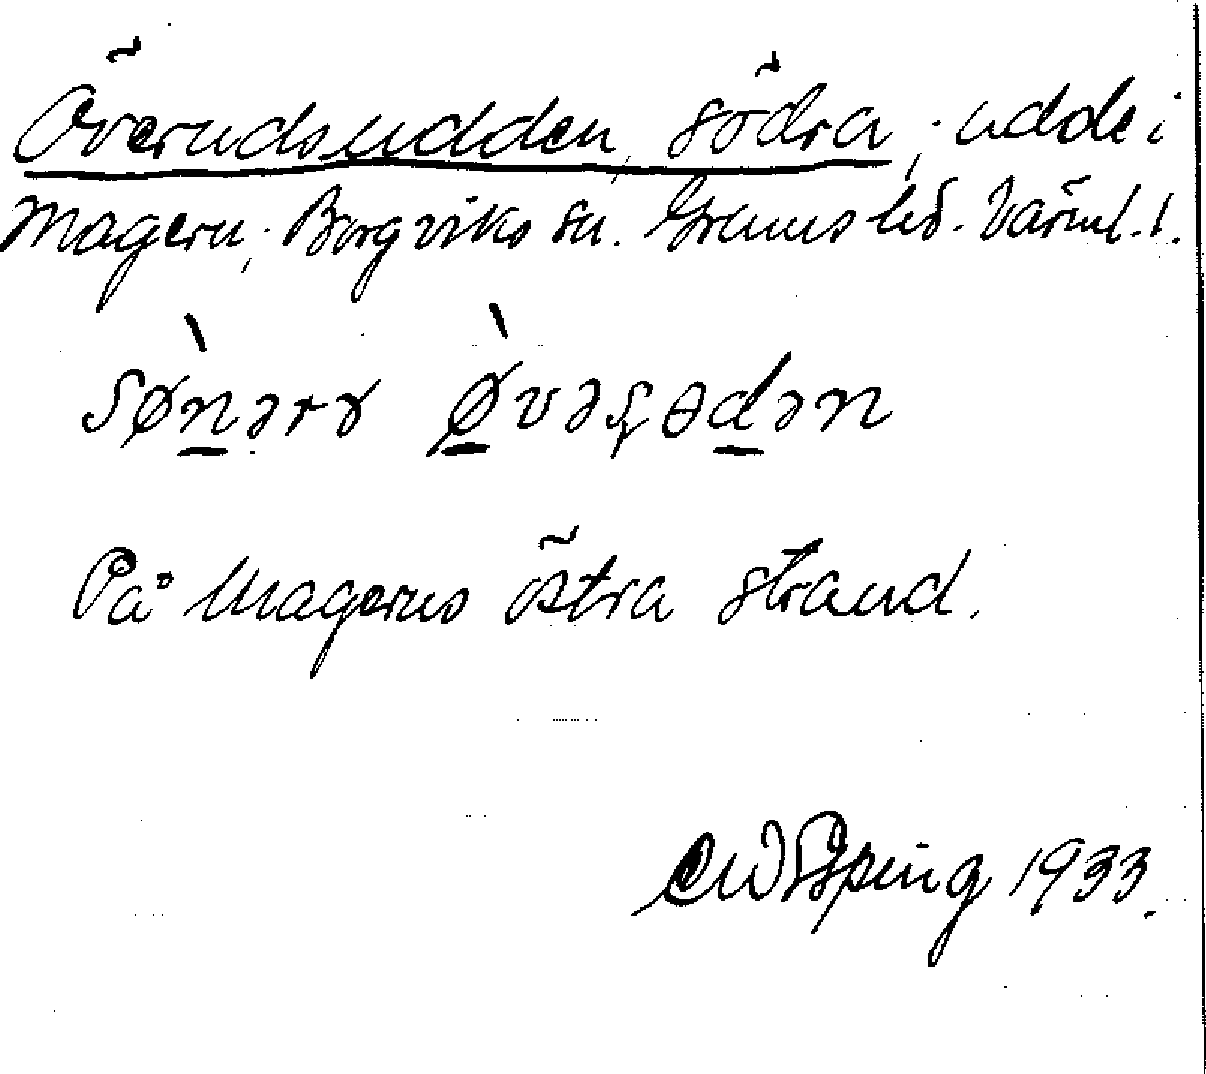 Överudsudden, södra, udde i
Magern, Borgviks sn. Grums hd. Värml. l.
sø̀nərɤ ø̀vəʂɵdən
På Magerns östra strand.
1933.